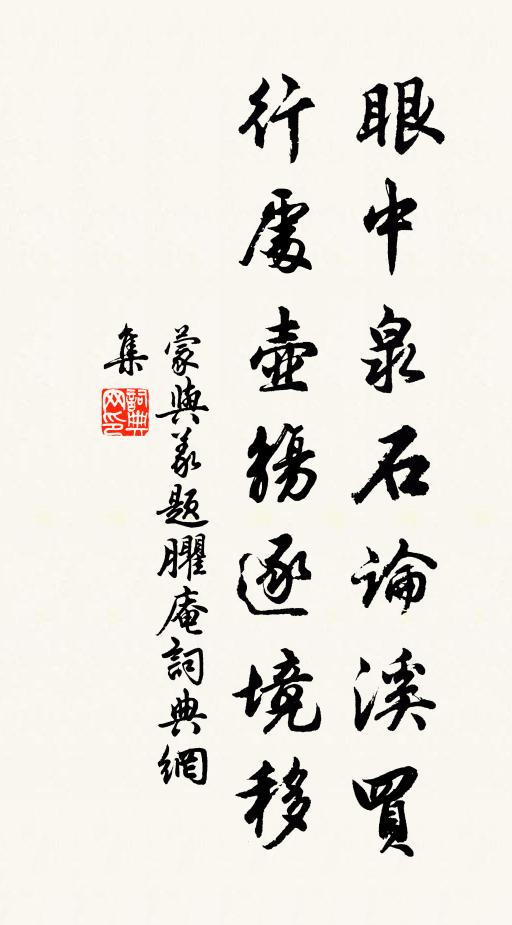 眼中泉石論溪買
行處壺觴逐境移
蒙與義題臞庵詞典網
集
詞典
网印